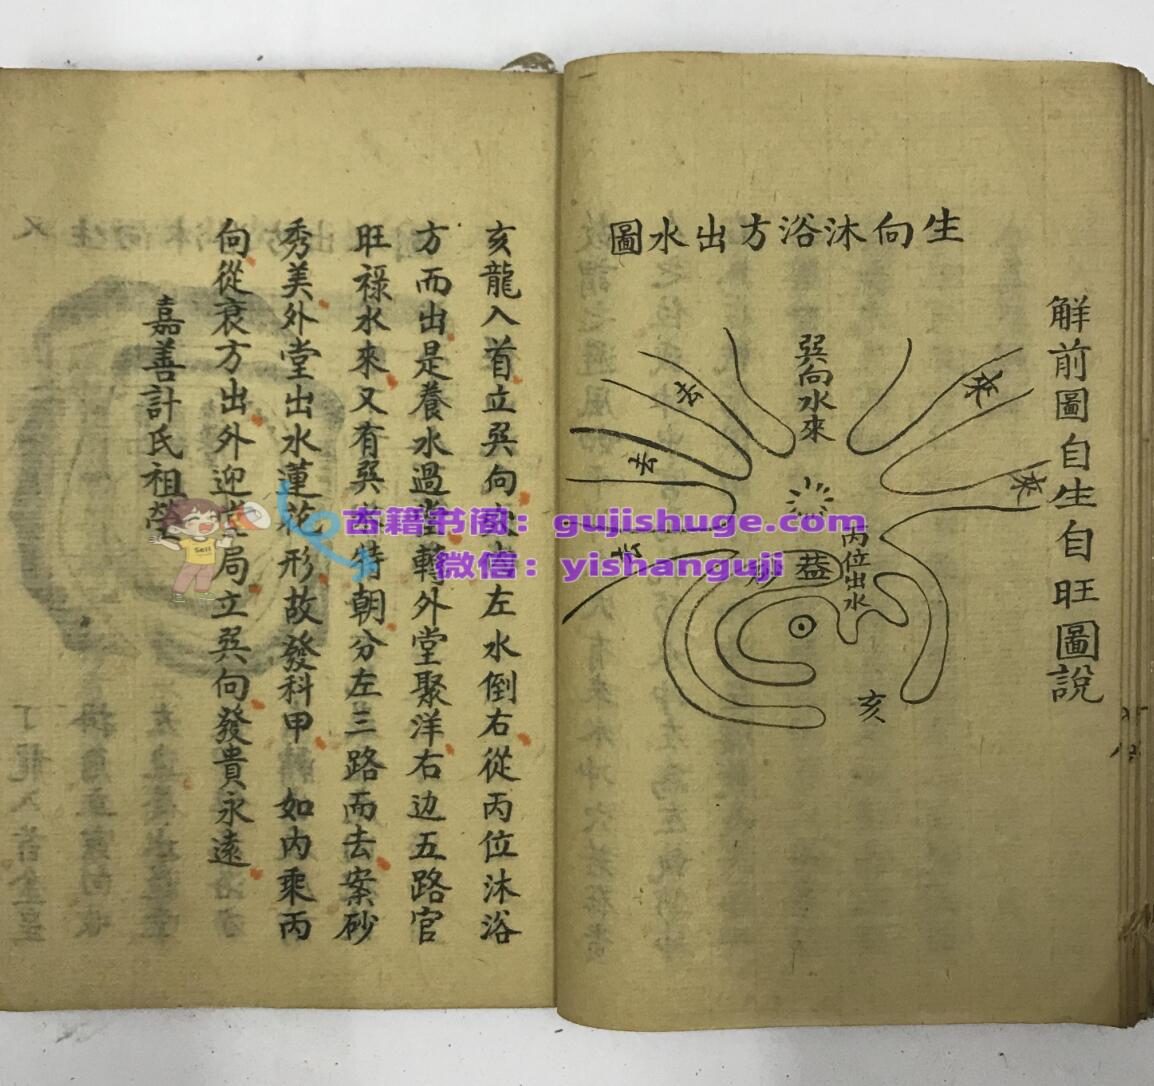 解前圖自生自旺圖說
生向沐浴方出水圖
巽向水來
去
去
去
來
來
丙位出水
益
砂
亥
亥龍入首立巽向 左水倒右從丙位沐浴
方而出是養水過堂轉外堂聚洋右边五路官
旺祿水來又有巽 特朝分左三路而去案砂
秀美外堂出水蓮花形故發科甲如內乘丙
向從衰方出外迎 局立巽向發貴永遠
嘉善計氏祖塋
古籍书阁：gujishuge.com
微信：yishanguji
Sell